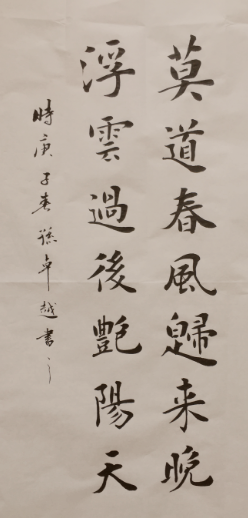 莫道春風歸来晚
浮雲過後艷陽天
時庚子春孫卓越書